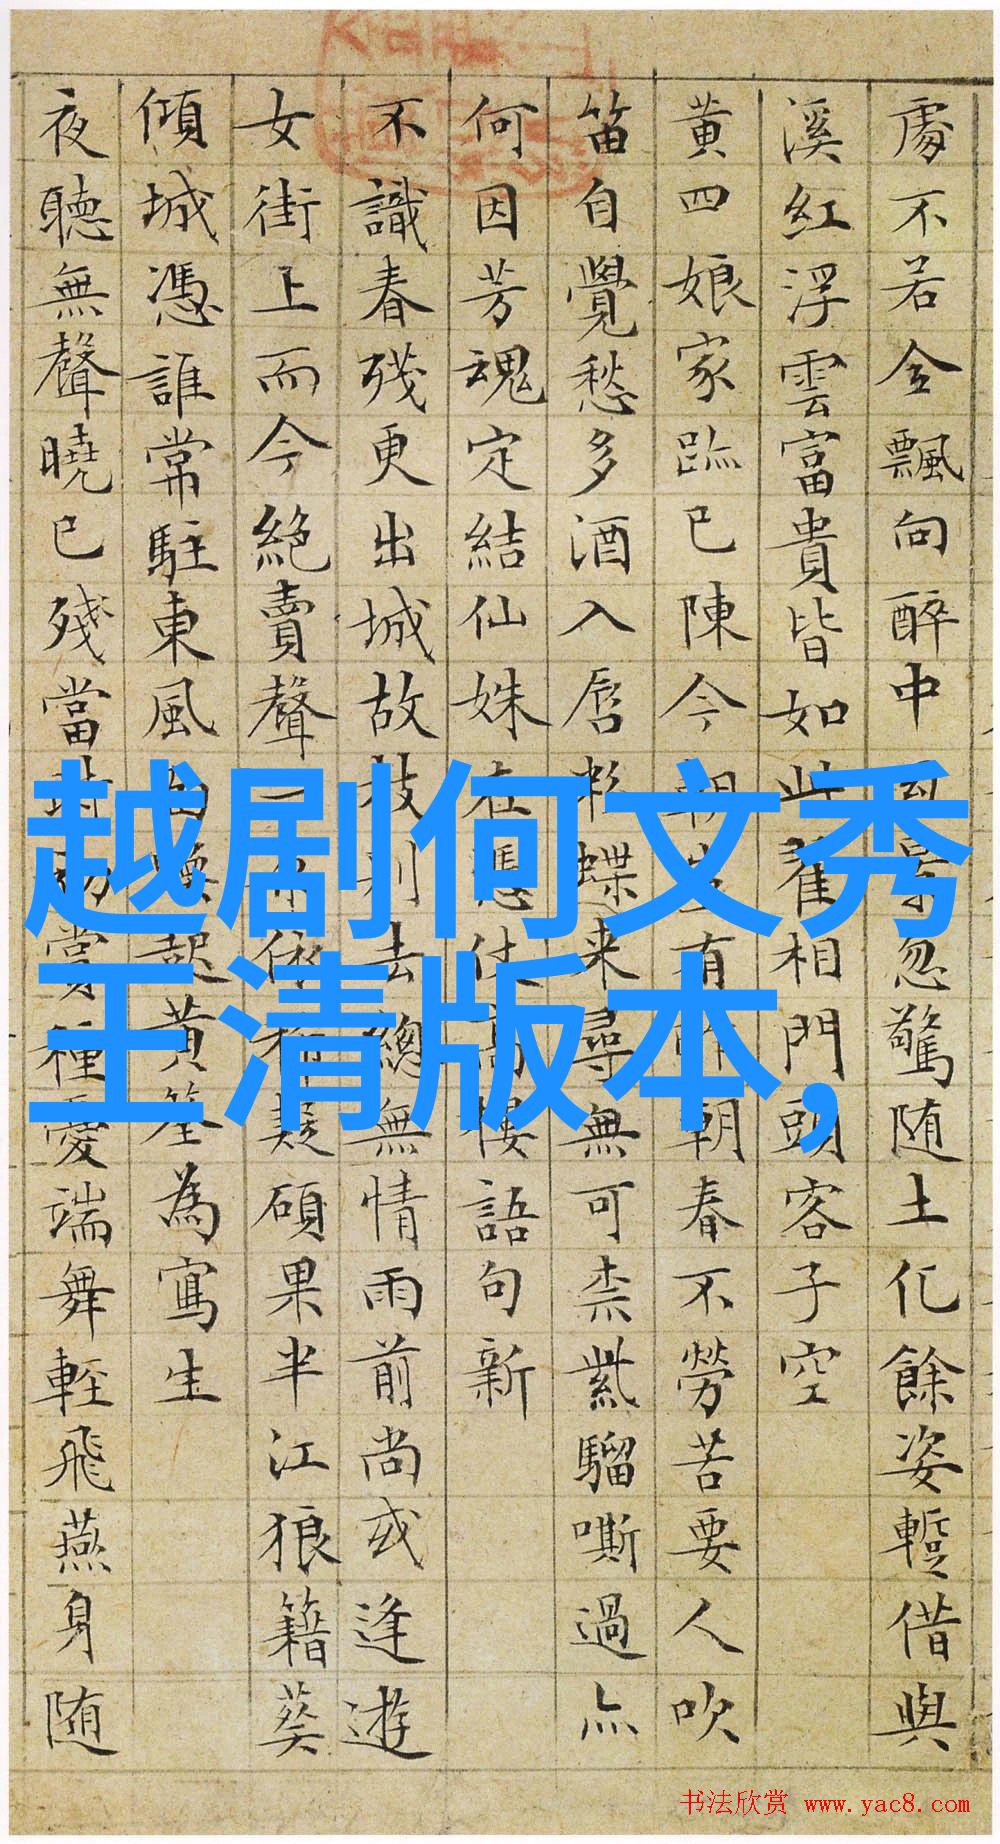 處不若全飄向醉中忽驚随土化餘姿蹔借與
溪紅浮雲富貴皆如此相門頭客子空
黄四娘家跡已陳今朝有昨朝春不勞苦要人吹
笛自覺愁多酒入唇粉蝶来尋無可柰紫騮嘶過亦
何因芳魂定結仙姝在憑仗高樓語句新
不識春殘更出城故枝别去總無情雨前尚或逢遊
女街上而今絶賣聲一片依稀疑碩果半江狼籍葬
傾城憑誰常駐東風面喚起黄筌為寫生
夜聽無聲曉已殘當時賞種愛端舞輕飛燕身随
越剧何文秀
王清版本,
书法欣赏 www.yac8.com